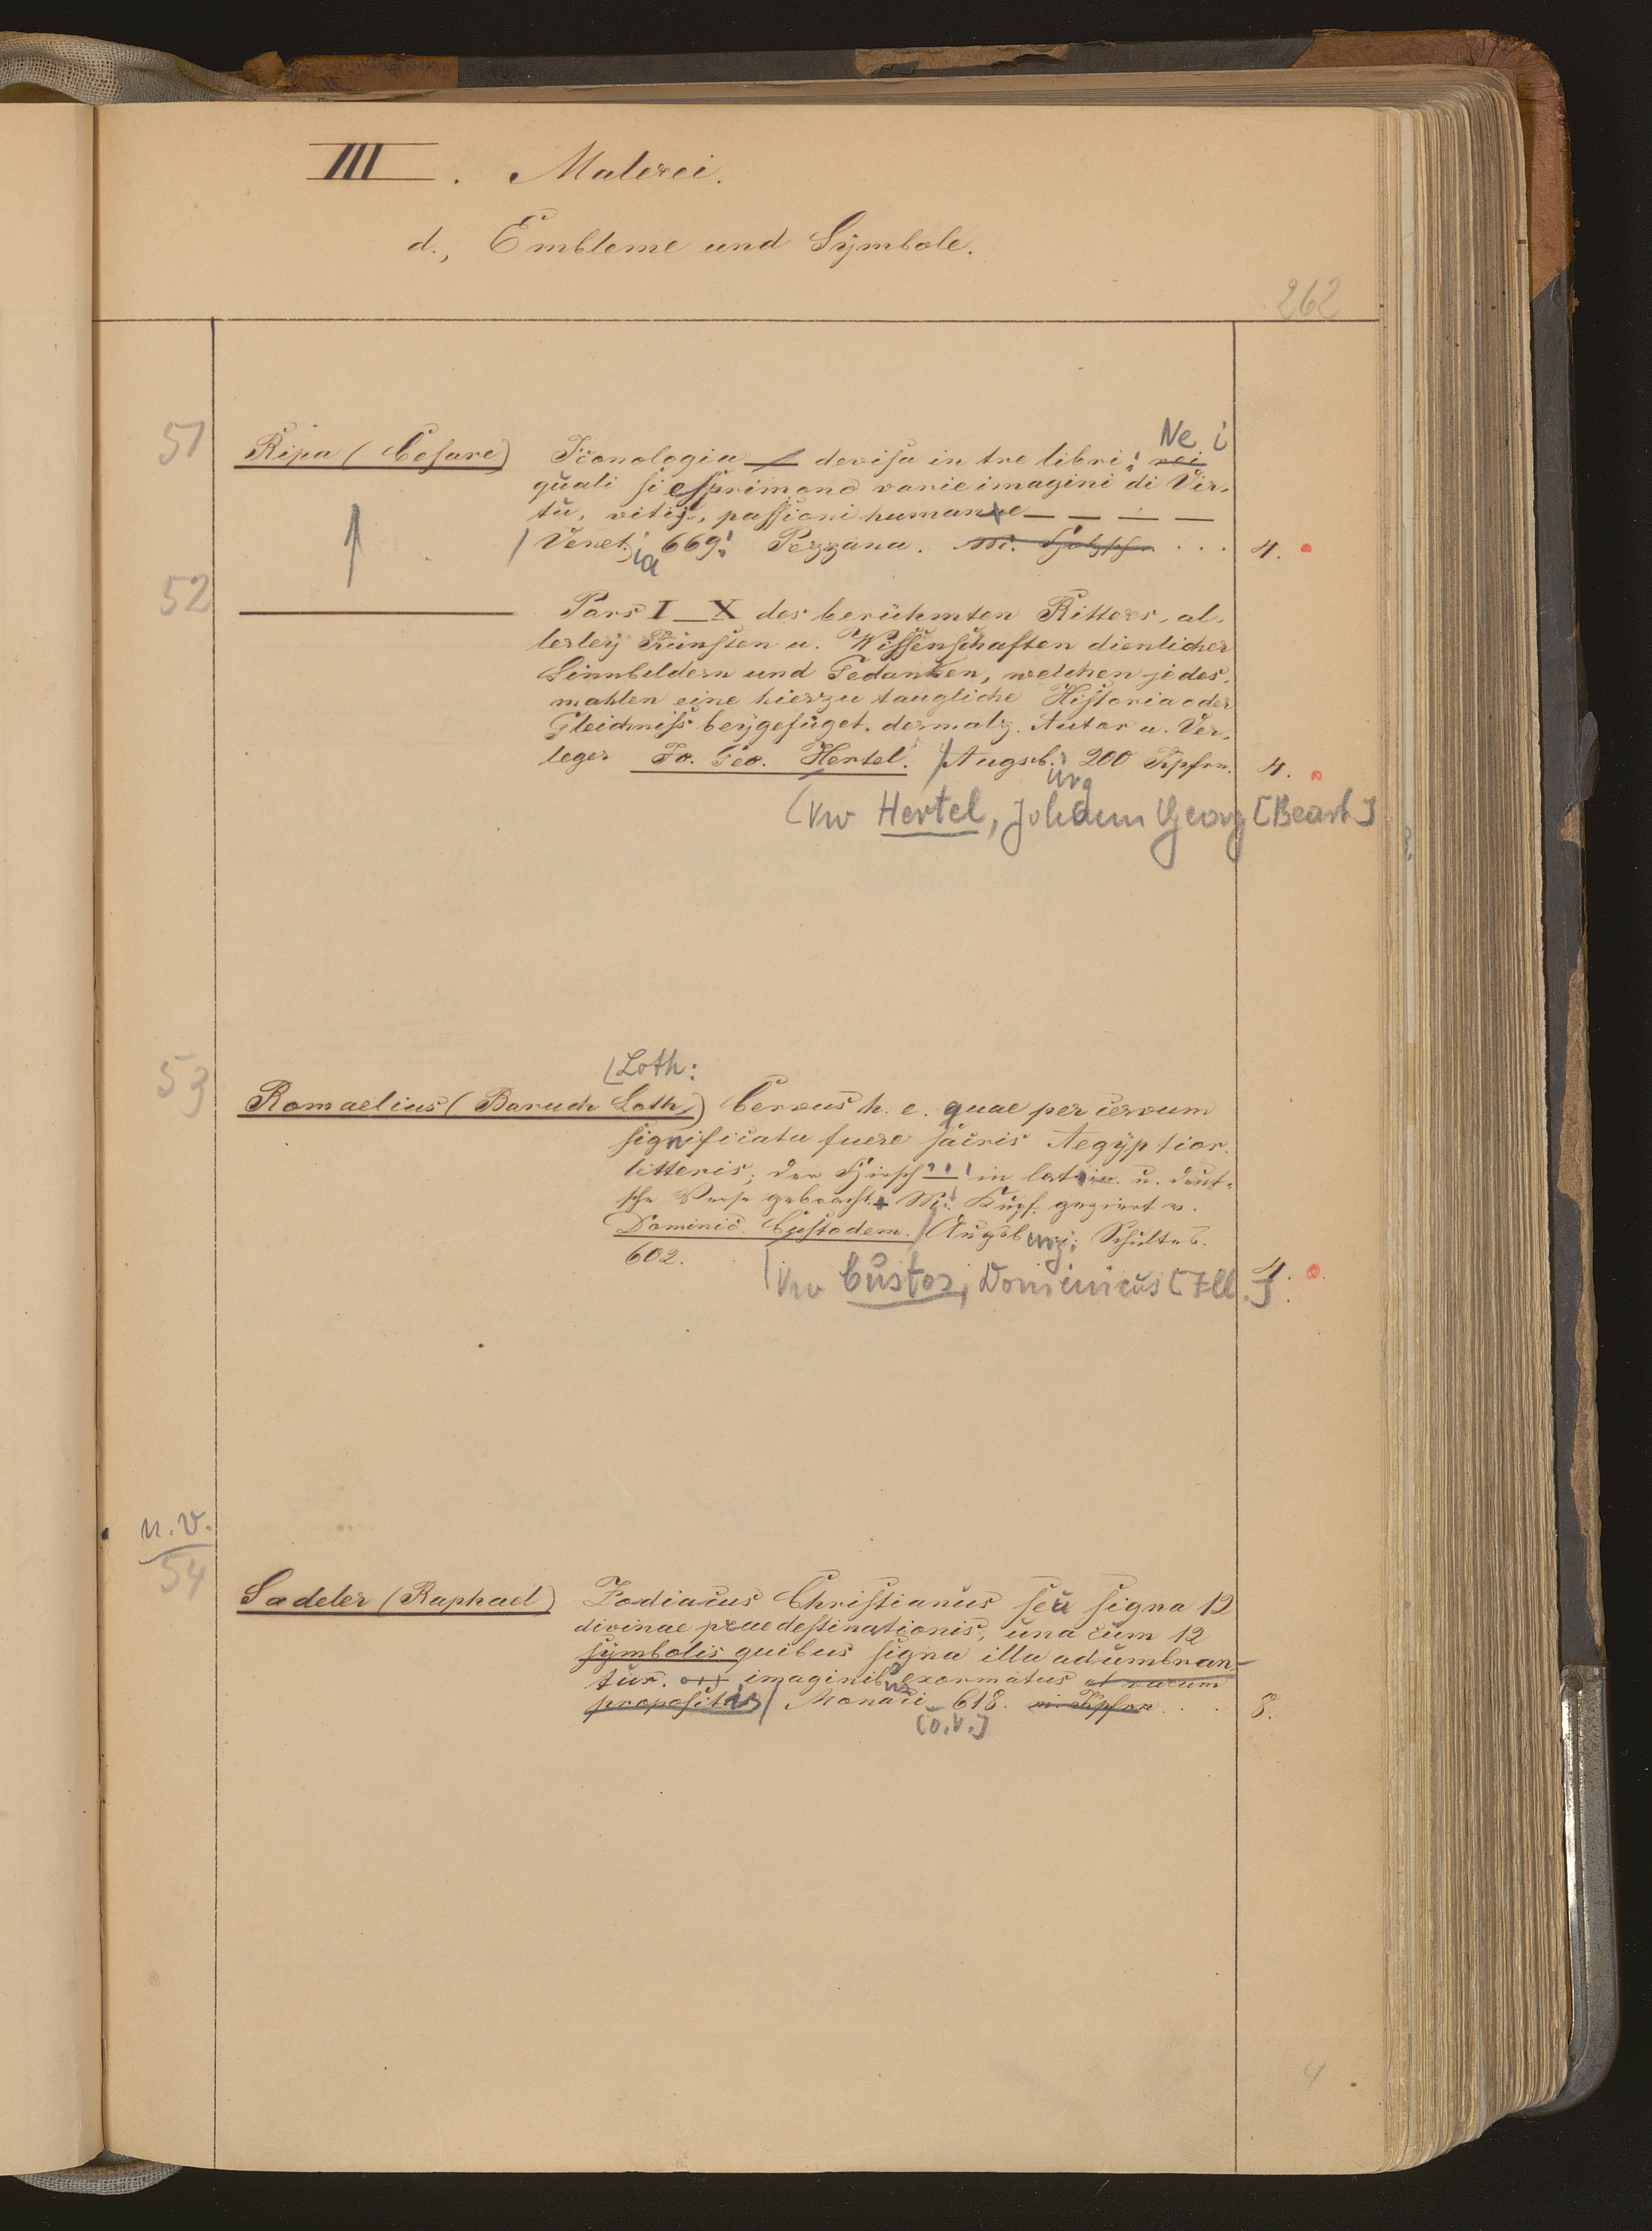 III. Malerei.
d., Embleme und Symbole.
262
Ne i
51 Ripa (Cesare) Iconologia — devisa in tre libri: nei
quali si esprimono varie imagini di Vir-
tù, vitij, passioni humane — — — —
Venet.ia 669. Pezzana. m. Holzschn. . . . 4.
52 ——— Pars I–X des berühmten Ritters, al-
lerley Künsten u. Wissenschaften dienlicher
Sinnbildern und Gedanken, welchen jedes-
mahlen eine hierzu taugliche Historia oder
Gleichniss beygefüget. dermalg. Autor u. Ver-
leger Jo. Geo. Hertel. Augsb.urg 200 Kpfrn. 4.
[Vw Hertel, Johann Georg [Bearb]
[Loth:
53 Romaelius (Baruch Loth) Cervus h. e. quae per cervum
significata fuere sacris Aegyptior.
litteris; der Hirsch ... in latein. u. deut-
sche Verse gebracht. Mi. Kupf. geziert v.
Dominic. Custodem. Augsburg: Schultes.
602. 4.
[Vw Custos, Dominicus [Ill.]
n. v.
54 Sadeler (Raphael) Zodiacus Christianus seu signa 12
divinae praedestinationis, una cum 12
symbolis quibus signa illa adumbran-
tur. imaginibus exornatus et rerum
propositis Monaci 618. m. Kpfrn . . 8.
[o.V.]
4